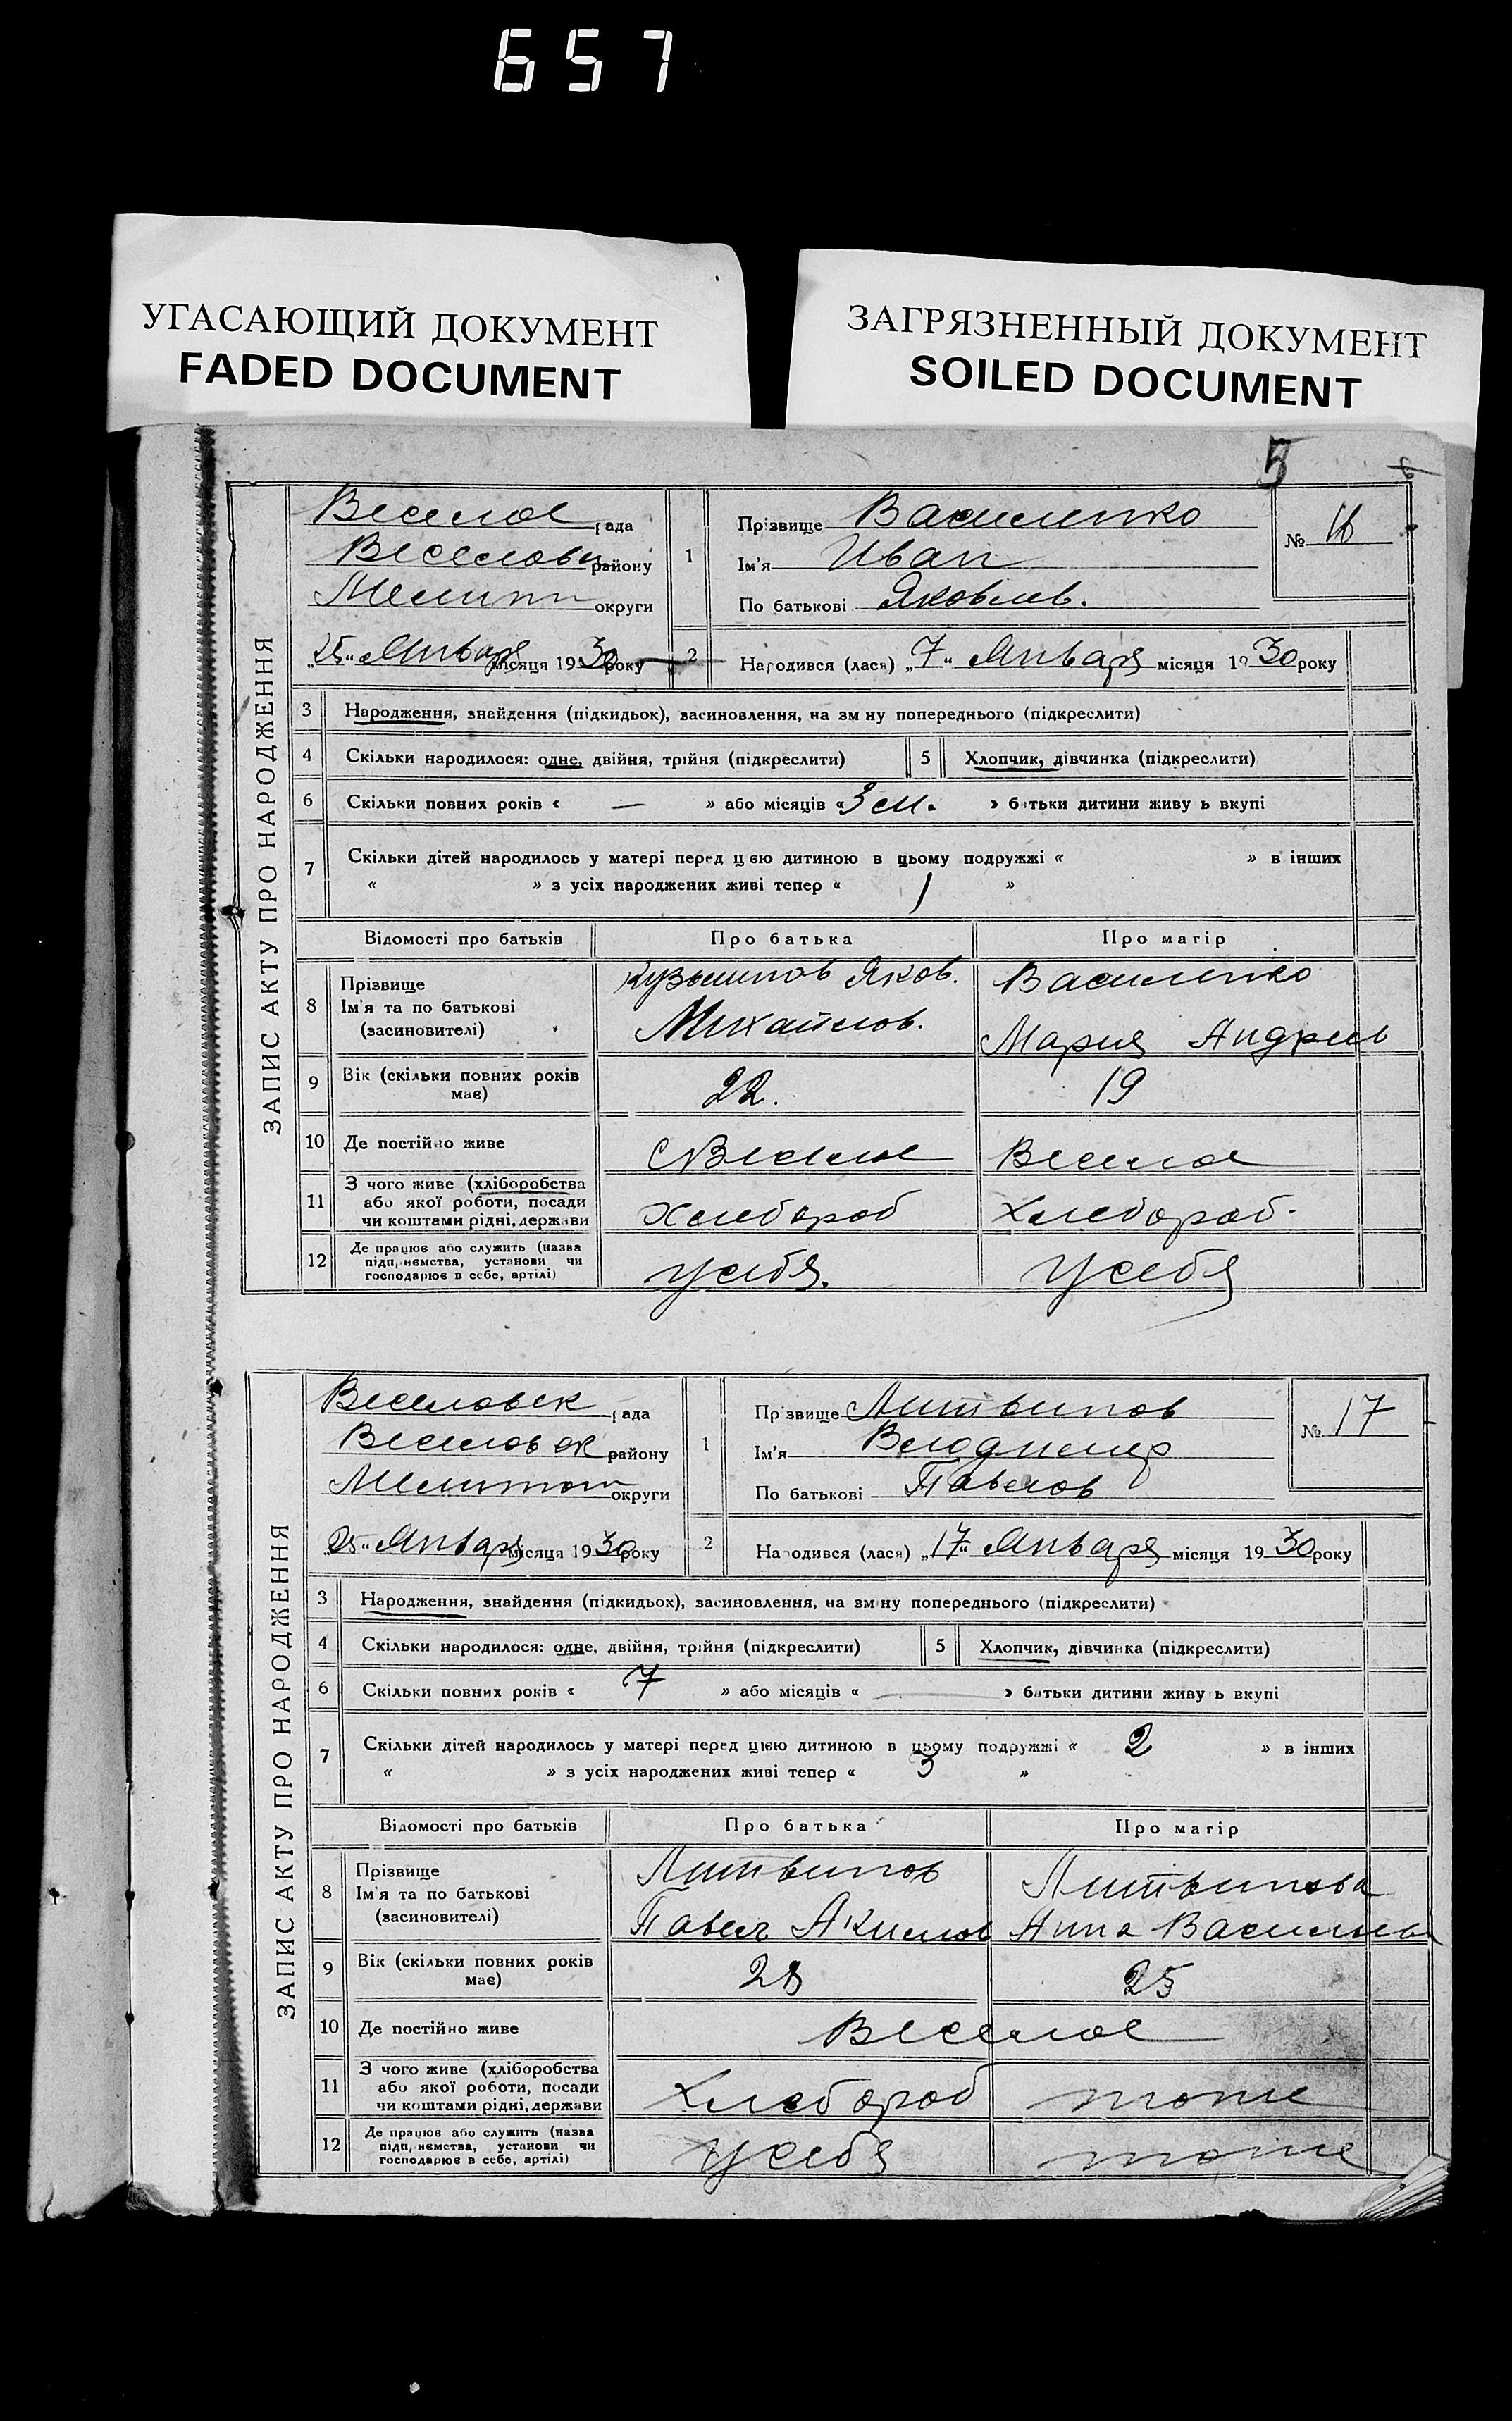 657
УГАСАЮЩИЙ ДОКУМЕНТ
FADED DOCUMENT
ЗАГРЯЗНЕННЫЙ ДОКУМЕНТ
SOILED DOCUMENT
5
ЗАПИС АКТУ ПРО НАРОДЖЕННЯ
Веселое рада
Веселовск району
Мелитп округи
„25“ Января місяця 1930 року
1 Прізвище Василенко
Ім'я Иван
По батькові Яковлев.
№ 16
2 Народився (лася) „7“ Января місяця 1930 року
3 Народження, знайдення (підкидьок), засиновлення, на зміну попереднього (підкреслити)
4 Скільки народилося: одне, двійня, трійня (підкреслити) 5 Хлопчик, дівчинка (підкреслити)
6 Скільки повних років « — » або місяців «3 м. » батьки дитини живуть вкупі
7 Скільки дітей народилось у матері перед цією дитиною в цьому подружжі « » в інших
« » з усіх народжених живі тепер « 1 »
Відомості про батьків Про батька Про матір
8 Прізвище Ім'я та по батькові (засиновителі)
Кузьминов Яков. Михайлов.
Василенко Мария Андреев
9 Вік (скільки повних років має) 22. 19
10 Де постійно живе с Веселое Веселое
11 З чого живе (хліборобства або якої роботи, посади чи коштами рідні, держави Хлебороб Хлебороб.
12 Де працює або служить (назва підприємства, установи чи господарює в себе, артілі) у себя. у себя
ЗАПИС АКТУ ПРО НАРОДЖЕННЯ
Веселовск рада
Веселовск району
Мелитоп округи
„25“ Января місяця 1930 року
1 Прізвище Литвинов
Ім'я Влодимир
По батькові Павлов
№ 17
2 Народився (лася) „17“ Января місяця 1930 року
3 Народження, знайдення (підкидьох), засиновлення, на зміну попереднього (підкреслити)
4 Скільки народилося: одне, двійня, трійня (підкреслити) 5 Хлопчик, дівчинка (підкреслити)
6 Скільки повних років « 7 » або місяців « — » батьки дитини живуть вкупі
7 Скільки дітей народилось у матері перед цією дитиною в цьому подружжі « 2 » в інших
« » з усіх народжених живі тепер « 3 »
Відомості про батьків Про батька Про матір
8 Прізвище Ім'я та по батькові (засиновителі)
Литвинов Павел Акимов
Литвинова Анна Васильев
9 Вік (скільки повних років має) 28 25
10 Де постійно живе Веселое
11 З чого живе (хліборобства або якої роботи, посади чи коштами рідні, держави Хлебороб тоже
12 Де працює або служить (назва підприємства, установи чи господарює в себе, артілі) у себя тоже